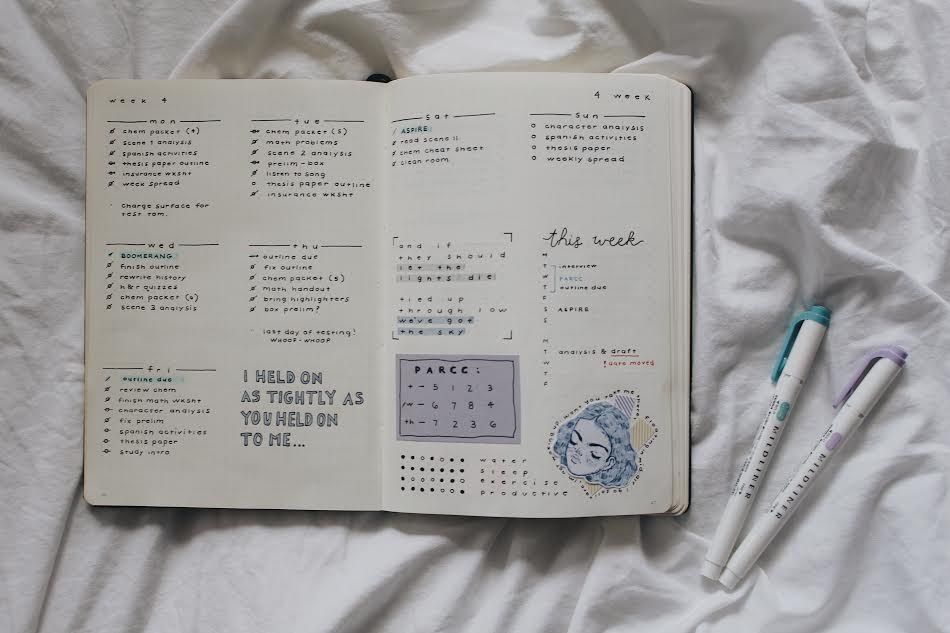 week 4
mon
chem packet (4)
scene 1 analysis
spanish activities
thesis paper outline
insurance wksht
week spread
charge surface for
test tom.
tue
chem packet (5)
math problems
scene 2 analysis
prelim - box
listen to song
thesis paper outline
insurance wksht
wed
BOOMERANG
finish outline
rewrite history
h&r quizzes
chem packet (6)
scene 3 analysis
thu
outline due
fix outline
chem packet (5)
math handout
bring highlighters
box prelim?
last day of testing!
WHOOP-WHOOP
fri
outline due
review chem
finish math wksht
character analysis
fix prelim
spanish activities
thesis paper
study intro
I HELD ON
AS TIGHTLY AS
YOU HELD ON
TO ME...
4 week
sat
ASPIRE
read scene ii
chem cheat sheet
clean room
sun
character analysis
spanish activities
thesis paper
weekly spread
and if
they should
let the
lights die
tied up
through low
we've got
the sky
this week
M
T interview
W PARCC
T outline due
F
S ASPIRE
S
M
T
W analysis & draft
T !date moved
F
PARCC:
t - 5 1 2 3
w - 6 7 8 4
th - 7 2 3 6
water
sleep
exercise
productive
MILDLINER
MILDLINER